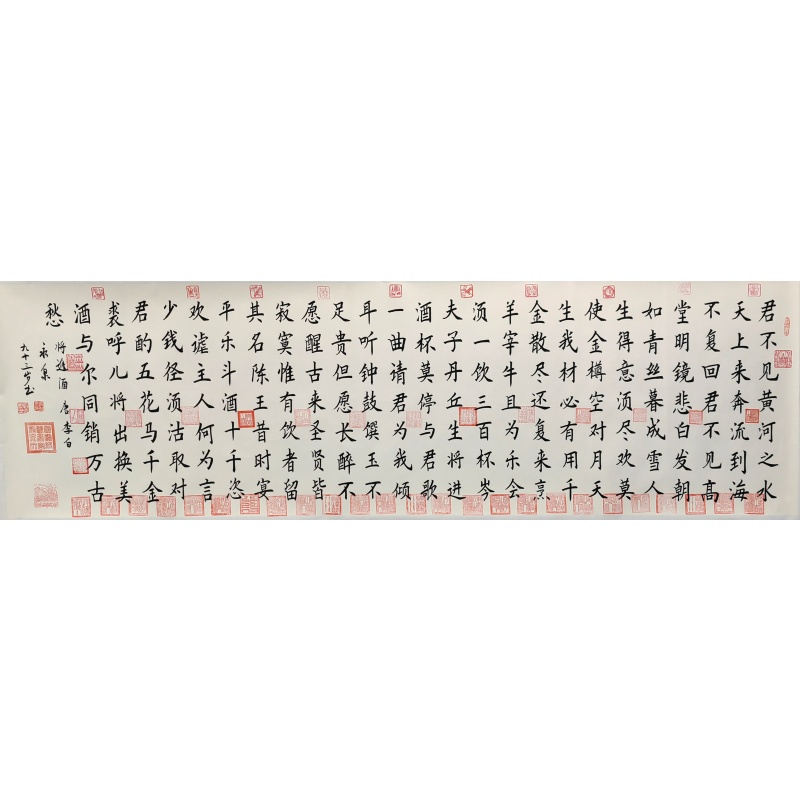 君不见黄河之水
天上来奔流到海
不复回君不见高
堂明镜悲白发朝
如青丝暮成雪人
生得意须尽欢莫
使金樽空对月天
生我材必有用千
金散尽还复来烹
羊宰牛且为乐会
须一饮三百杯岑
夫子丹丘生将进
酒杯莫停与君歌
一曲请君为我倾
耳听钟鼓馔玉不
足贵但愿长醉不
愿醒古来圣贤皆
寂寞惟有饮者留
其名陈王昔时宴
平乐斗酒十千恣
欢谑主人何为言
少钱径须沽取对
君酌五花马千金
裘呼儿将出换美
酒与尔同销万古
愁
将进酒 唐李白
九十三岁书